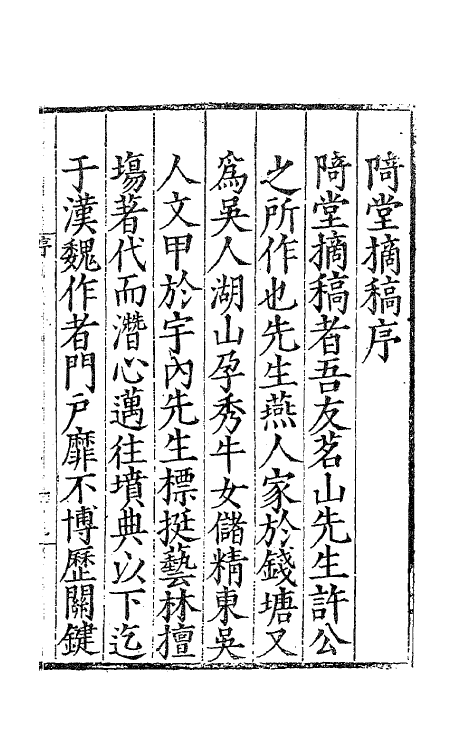 陭堂摘稿序
陭堂摘稿者吾友茗山先生許公
之所作也先生燕人家於錢塘又
爲吳人湖山孕秀牛女儲精東吳
人文甲於宇內先生標挺藝林擅
場著代而潛心邁往墳典以下迄
于漢魏作者門戶靡不博歷關鍵
序